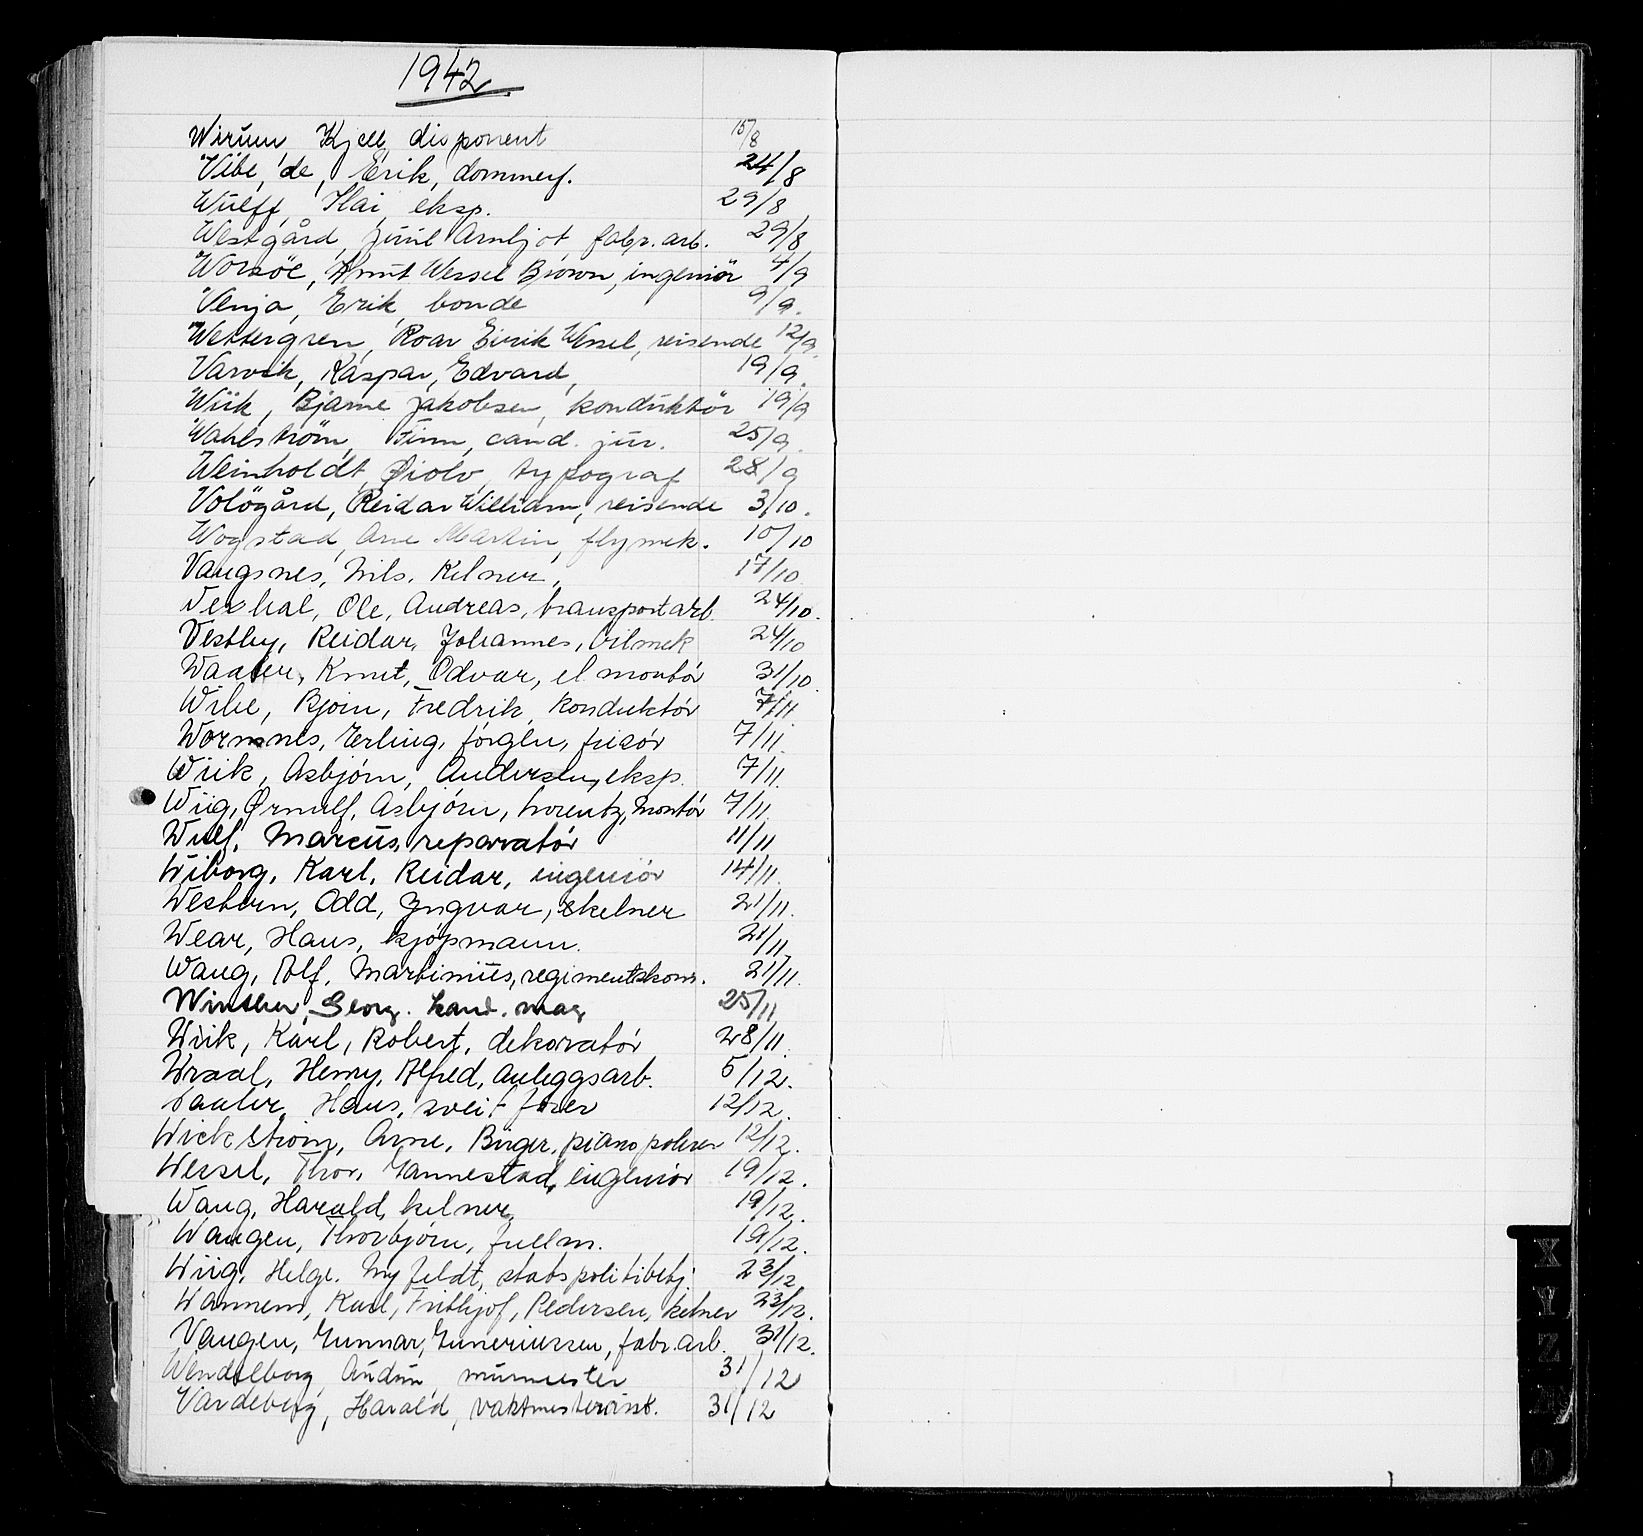 1942.
Wirum, Kjell, disponent 15/8
Vibe, de, Erik, dommerf. 24/8
Wulff, Kai, eksp. 29/8
Westgård, Juul Arnljot, fabr. arb. 29/8
Worsöe, Knut Wessel Brown, ingeniör 4/9
Venja, Erik, bonde 9/9.
Wettergren, Roar Eirik Wessel, reisende 12/9.
Varvik, Kaspar, Edvard, 19/9.
Wiik, Bjarne Jakobsen, konduktör 19/9
Wahlström, Finn, cand. jur. 25/9.
Weinholdt, Øiolv, typograf 28/9
Volögård, Reidar William, reisende 3/10.
Wogstad, Arne Martin, flymek. 10/10
Vangsnes, Nils, Kelner, 17/10.
Ole, Andreas, transportarb. 24/10.
Vestby, Reidar, Johannes, bilmek 24/10
Waaler, Knut, Odvar, el montör 31/10.
Wibe, Bjørn, Fredrik, konduktör 7/11
Wormnes, Erling, Jörgen, frisör 7/11.
Wiik, Asbjörn, Andersen, eksp. 7/11.
Wiig, Ørnulf, Asbjörn, Lorentz, Montör 7/11.
Wulf, Marcus, reparatör 11/11
Wiborg, Karl, Reidar, ingeniör 14/11.
Western, Odd, Yngvar, kelner 21/11.
Wear, Hans, kjöpmann. 21/11
Wang, Alf, Martinius, regimentskom. 21/11.
Winther, Georg. kand. mag. 25/11
Wiik, Karl, Robert, dekoratör 28/11.
Wraal, Henry, Alfred, anleggsarb. 5/12.
Vaaler, Hans, sveitfører 12/12.
Wickström, Arne, Birger, pianopolerer 12/12.
Wessel, Thor, Gannestad, ingeniör 19/12.
Wang, Harald, kelner, 19/12.
Wangen, Thorbjörn, fullm. 19/12.
Wiig, Helge. Myfeldt, statspolitibetj. 23/12
Karl, Frithjof, Pedersen, kelner 23/12.
Vangen, Gunnar, Guneriussen, fabr. arb. 31/12.
Wendelborg, Audun murmester 31/12
Vardeberg, Harald, vaktmesterassk. 31/12
X
Y
Z
Æ
Ø